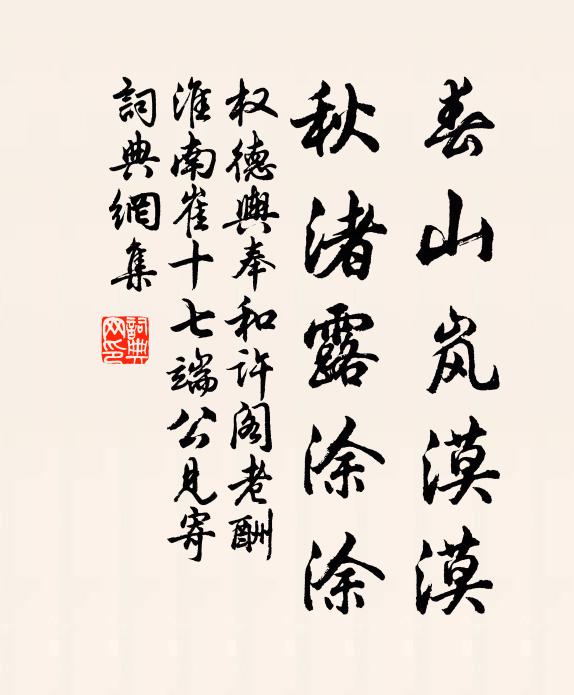 春山岚漠漠
秋渚露涂涂
权德舆奉和许阁老酬
淮南崔十七端公见寄
词典網集
詞典网印